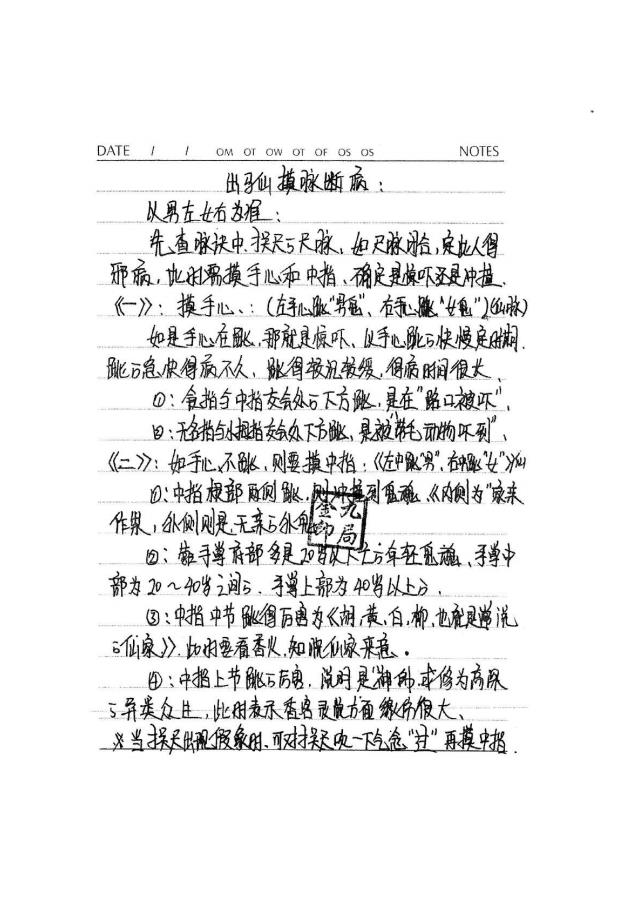 DATE / / OM OT OW OT OF OS OS NOTES
出马仙摸脉断病：
以男左女右为准：
先查脉诀中、尺脉、如尺脉闭合，定此人得
邪病，此时需摸手心和中指、确定是惊吓还是冲撞.
《一》：摸手心、：（左手心跳“男鬼”、右手心跳“女鬼”）（仙脉）
如是手心在跳，那就是惊吓、以手心跳的快慢定时间.
跳的急快得病不久，跳得较沉较缓，得病时间很久、
①：食指与中指交会处的下方跳，是在“路口被吓”、
②：无名指与小拇指交会处下方跳，是被“带毛动物吓到”、
《二》：如手心不跳，则要摸中指：《左中跳“男”，右中跳“女”》仙
①：中指根部两侧跳，则冲撞到鬼魂、《内侧为“家亲
作祟，外侧则是无亲的外鬼
金九
印局
②：手掌底部多是20岁以下的年轻鬼魂、手掌中
部为20～40岁之间的. 手掌上部为40岁以上的.
③：中指中节跳得厉害为《胡，黄，白，柳，也就是常说
的仙家》》. 此时要看香火，知晓仙家来意。
④：中指上节跳的厉害，说明是“神佛，或修为高深
的异类众生，此时表示香客灵魂方面缘份很大、
※当尺出现假象时，可对尺吹一下气念“”再摸中指.